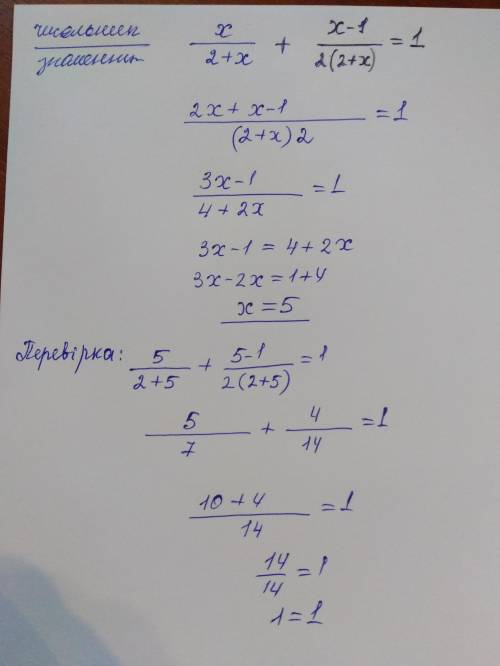 чисельник/знаменник x/(2+x) + (x-1)/(2(2+x)) = 1
(2x + x-1)/((2+x)2) = 1
(3x-1)/(4+2x) = 1
3x-1 = 4+2x
3x-2x = 1+4
x = 5
Перевірка: 5/(2+5) + (5-1)/(2(2+5)) = 1
5/7 + 4/14 = 1
(10+4)/14 = 1
14/14 = 1
1 = 1